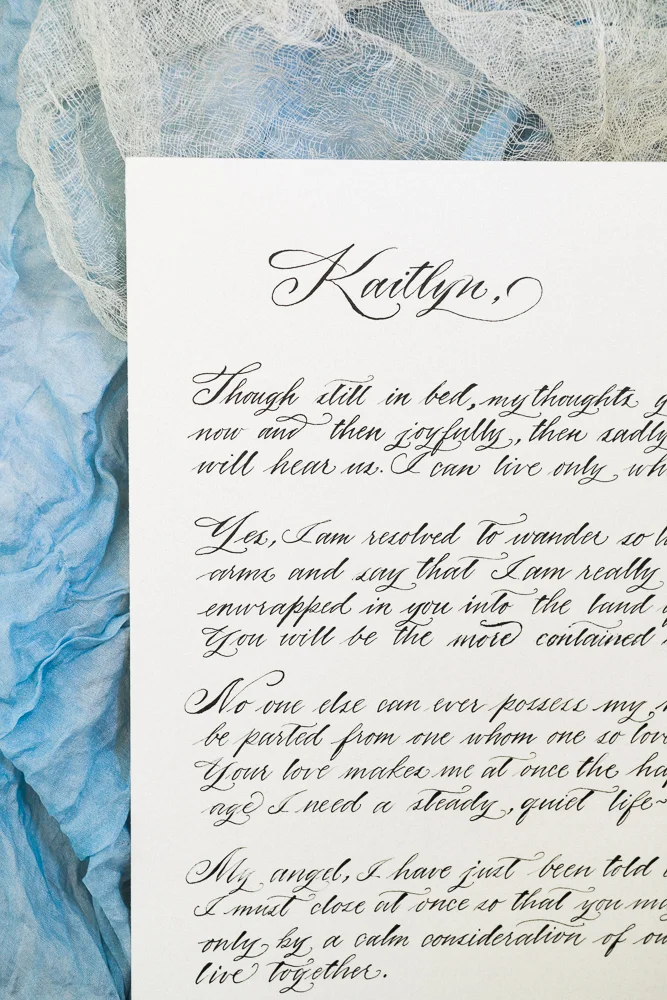 Kaitlyn,
Though still in bed, my thoughts g
now and then joyfully, then sadly
will hear us. I can live only wh
Yes, I am resolved to wander so l
arms and say that I am really
enwrapped in you into the land
You will be the more contained
No one else can ever possess my
be parted from one whom one so love
Your love makes me at once the hap
age I need a steady, quiet life~
My angel, I have just been told
I must close at once so that you ma
only by a calm consideration of ou
live together.